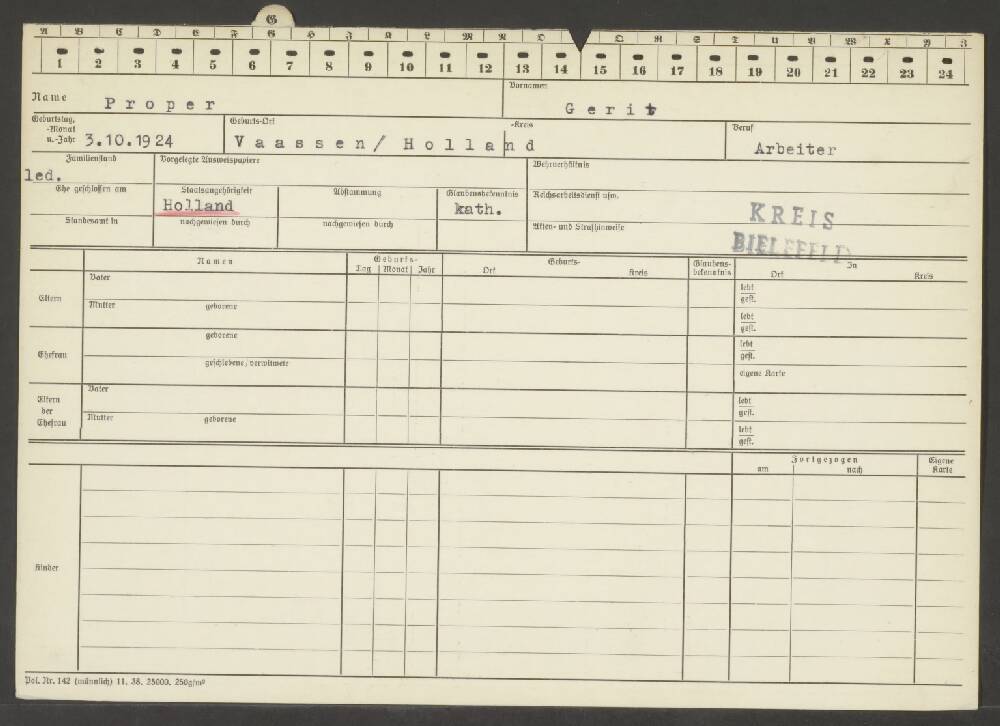 G
A B C D E F G H J K L M N O Q R S T U V W X Y Z
1 2 3 4 5 6 7 8 9 10 11 12 13 14 15 16 17 18 19 20 21 22 23 24
Name Proper
Vornamen Gerit
Geburtstag, -Monat u. -Jahr 3.10.1924
Geburts-Ort Vaassen/ Holland
-Kreis
Beruf Arbeiter
Familienstand
led.
Vorgelegte Ausweispapiere
Wehrverhältnis
Ehe geschlossen am
Staatsangehörigkeit
Holland
Abstammung
Glaubensbekenntnis
kath.
Reichsarbeitsdienst usw.
KREIS
BIELEFELD
Standesamt in
nachgewiesen durch
nachgewiesen durch
Akten- und Strafhinweise
Namen
Geburts-
Tag Monat Jahr
Geburts-
Ort Kreis
Glaubens-
bekenntnis
In
Ort Kreis
Eltern
Vater
lebt
gest.
Mutter geborene
lebt
gest.
Ehefrau
geborene
lebt
gest.
geschiedene, verwitwete
eigene Karte
Eltern
der
Ehefrau
Vater
lebt
gest.
Mutter geborene
lebt
gest.
Fortgezogen
am nach
Eigene
Karte
Kinder
Pol. Nr. 142 (männlich) 11. 38. 25000. 250g/m²